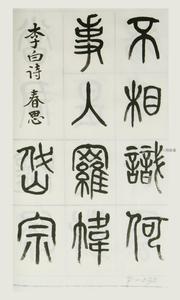 不相識何
事入羅幃
李白诗 春思
岱宗